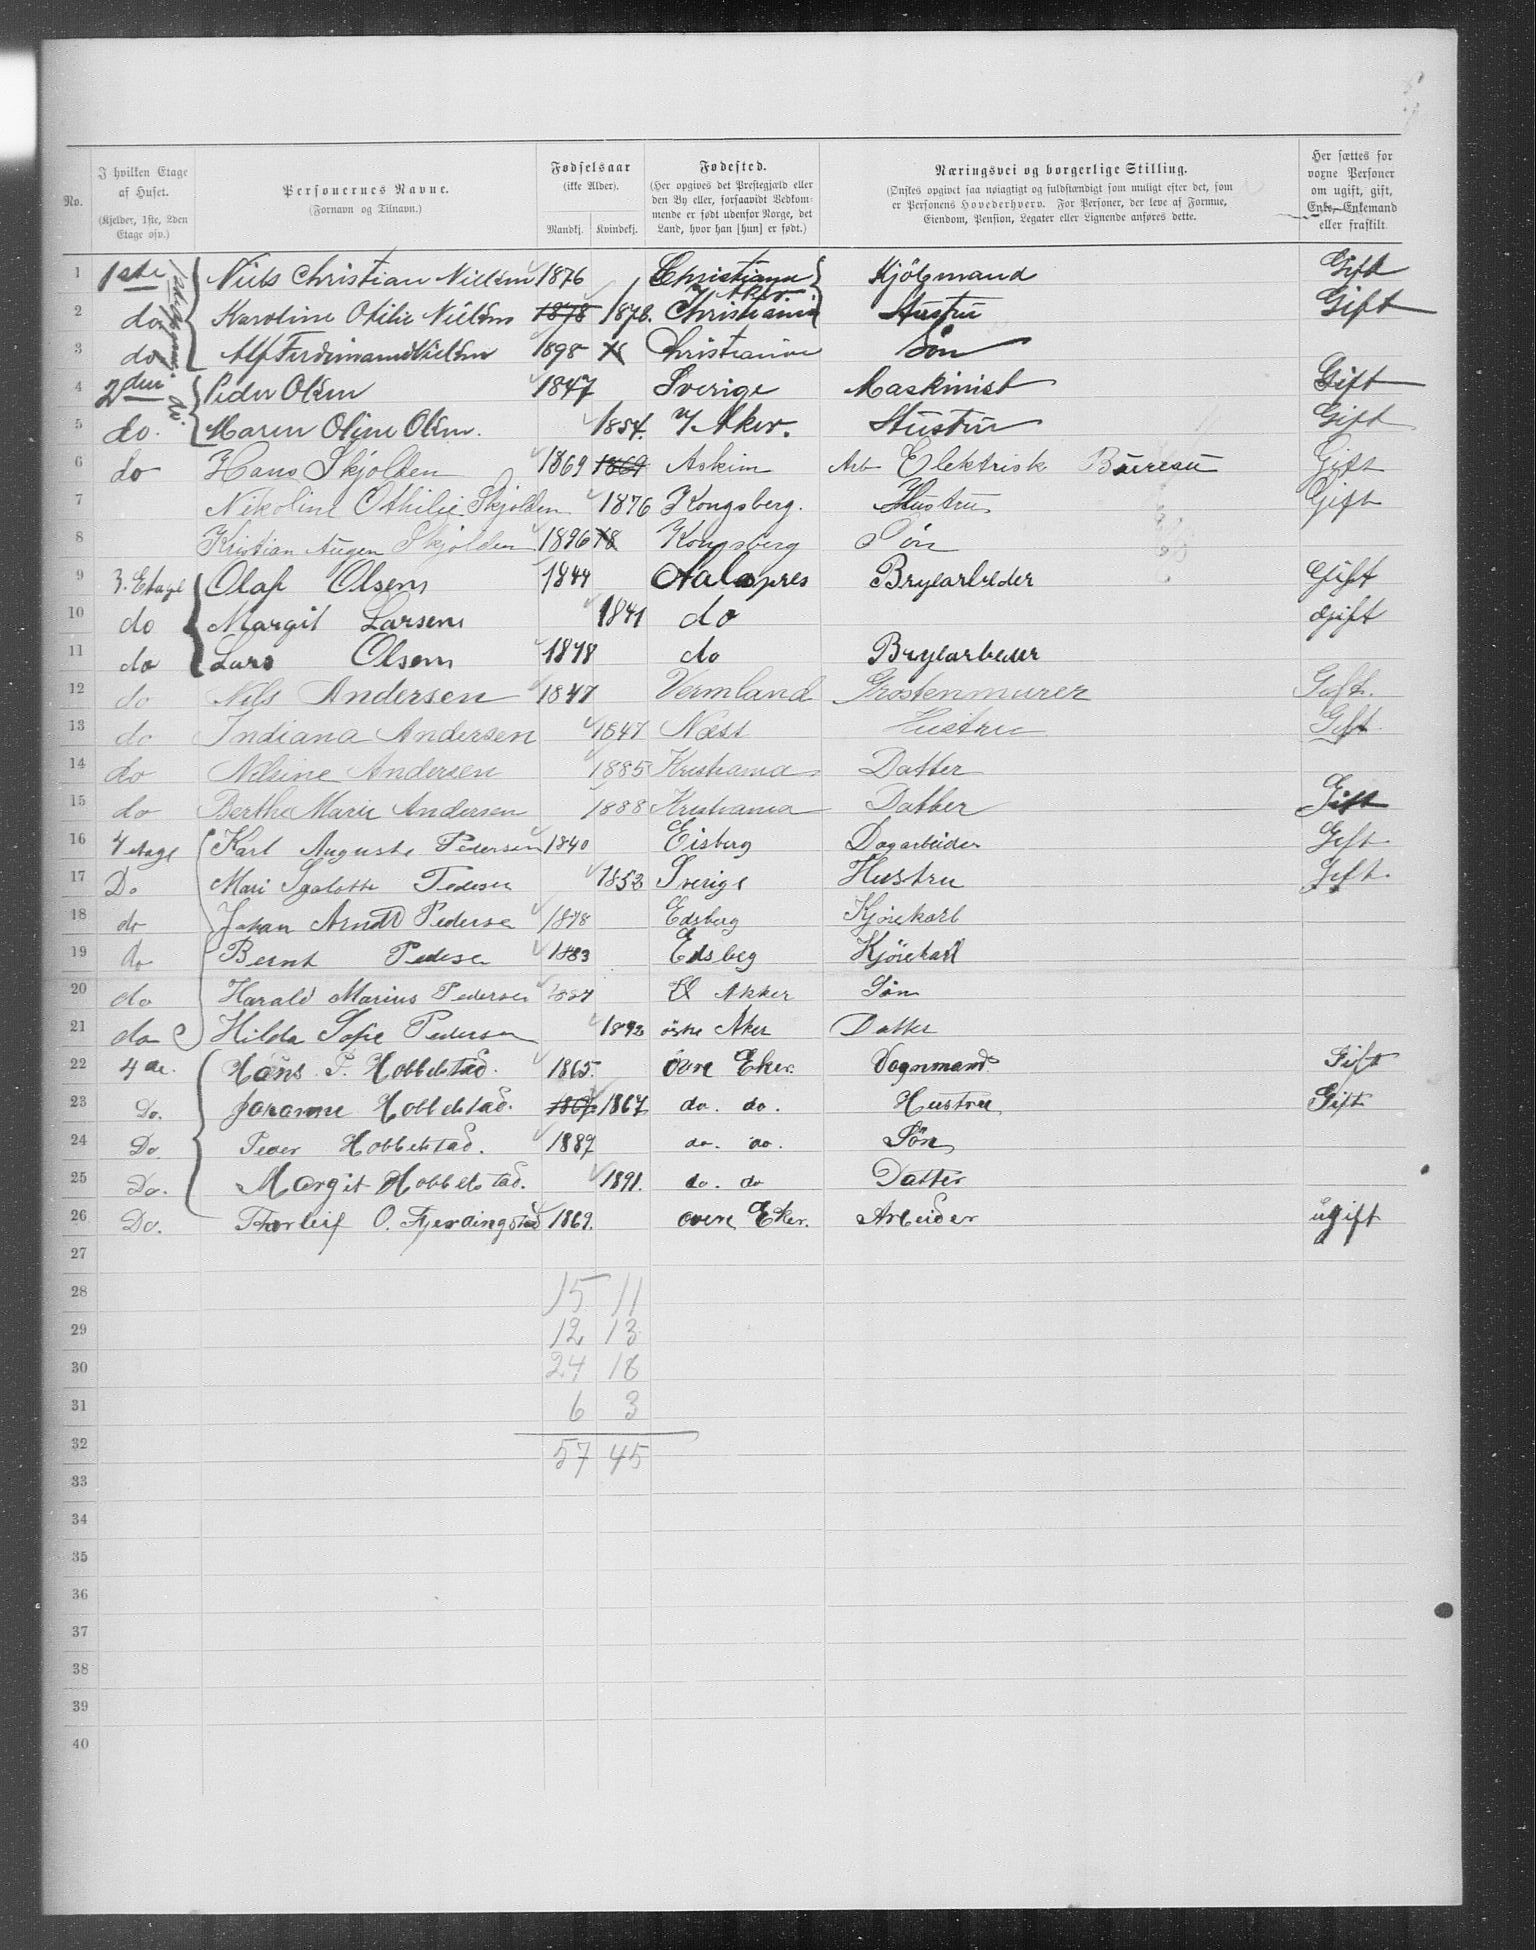 No.
I hvilken Etage af Huset. (Kjelder, 1ste, 2den Etage osv.)
Personernes Navne. (Fornavn og Tilnavn.)
Fødselsaar (ikke Alder). Mandkj. Kvindekj.
Fødested. (Her opgives det Prestegjæld eller den By eller, forsaavidt Vedkommende er født udenfor Norge, det Land, hvor han [hun] er født.)
Næringsvei og borgerlige Stilling. (Ønskes opgivet saa nøiagtigt og fuldstændigt som muligt efter det, som er Personens Hovederhverv. For Personer, der leve af Formue, Eiendom, Pension, Legater eller Lignende anføres dette.)
Her sættes for voxne Personer om ugift, gift, Enke, Enkemand eller fraskilt.
1 1ste Niels Christian Nielsen 1876 Christiania Kjöbmand Gift
2 do. Karoline Otilie Nielsen 1878 1878. V Aker Christiania Hustru Gift
3 do Alf Ferdinand Nielsen 1898 Christiania Sön
4 2den Peder Olsen 1847 Sverige Maskinist Gift
5 do. Maren Oline Olsen. 1854. V Aker. Hustru Gift
6 do Hans Skjolden 1869 1869 Askim Arb Elektrisk Bureau Gift
7 Nikoline Othilie Skjolden 1876 Kongsberg. Hustru Gift
8 Kristian Augen Skjolden 1896 Kongsberg Sön
9 3. Etage Olaf Olsen 1844 Bryearbeder Gift
10 do Margit Larsen 1841 do Gift
11 do Lars Olsen 1878 do Bryearbeder
12 do Nils Andersen 1847 Vermland Grostenmurer Gift.
13 do Indiana Andersen 1847 Næss Hustru Gift
14 do Nilsine Andersen 1885 Kristiania Datter
15 do Berthe Marie Andersen 1888 Kristiania Datter Gift
16 4 etage Karl Auguste Pedersen 1840 Eisberg Dagarbeider Gift
17 Do Mari Pedersen 1853 Sverige Hustru Gift.
18 do Johan Arndt Pedersen 1878 Edsberg Kjörekarl
19 do Bernt Pedersen 1883 Edsbeg Kjörekarl
20 do Harald Marius Pedersen 1887 Akker Sön
21 do Hilda Sofie Pedersen 1892 östre Aker Datter
22 4de. Hans P. Hobbelstad. 1865. övre Eker. Vognmand Gift
23 Do. Joranne Hobbelstad. 1867 1867 do. do. Hustru Gift
24 Do Peder Hobbelstad. 1887 do. do. Sön
25 Do. Margit Hobbelstad. 1891. do. do Datter
26 Do. Thorleif O. Fjerdingstad 1869. övere Eker. Arbeider ugift
27
28 15 11
29 12 13
30 24 18
31 6 3
32 57 45
33
34
35
36
37
38
39
40